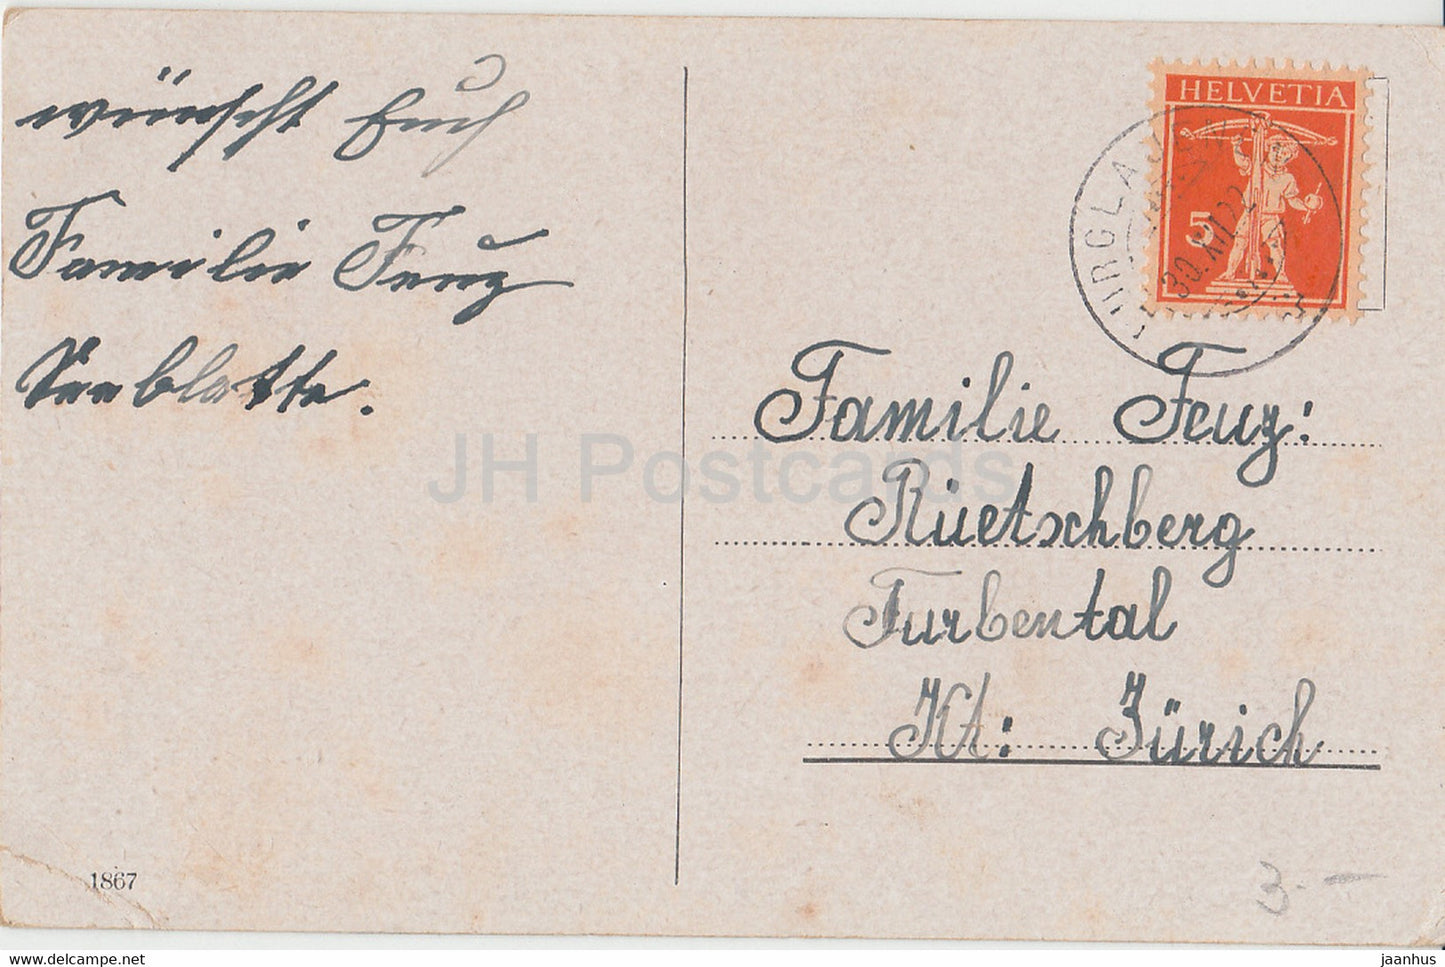 wünscht Euch
Familie Feuz
Seeblatte.
HELVETIA
5
30.XII.22
Familie Feuz:
Ruetschberg
Turbental
Kt: Zürich
JH Postcards
1867
3.-
jaanhus